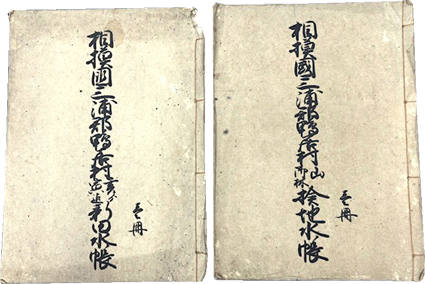 相摸國三浦郡鴨居村山御林検地水帳
壱冊
相摸國三浦郡鴨居村
新田水帳
壱冊